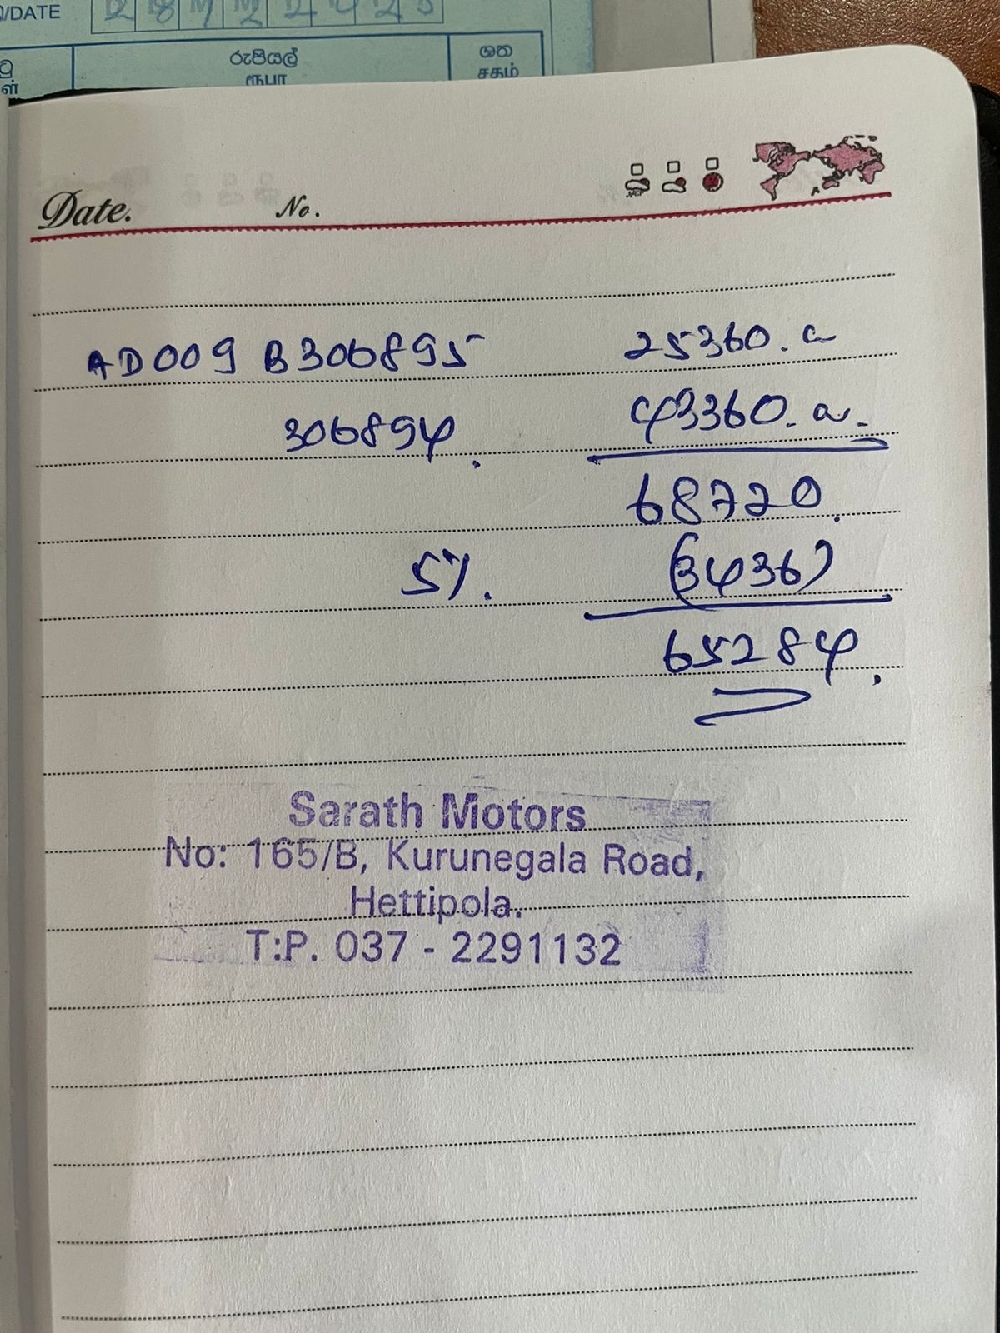 /DATE
රුපියල් ශත
ரூபா சதம்
Date. No.
AD009 B306895 25360.00
306894. 43360.00.
68720.
5%. (3436)
65284.
Sarath Motors
No: 165/B, Kurunegala Road,
Hettipola.
T:P. 037 - 2291132